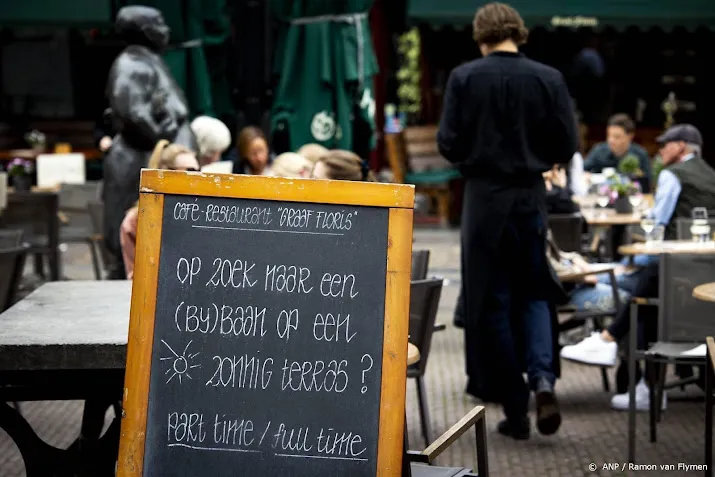 CAFÉ-RESTAURANT "GRAAF FLORIS"
OP ZOEK NAAR EEN
(BY)BAAN OP EEN
ZONNIG TERRAS?
PART TIME / FULL TIME
© ANP / Ramon van Flymen